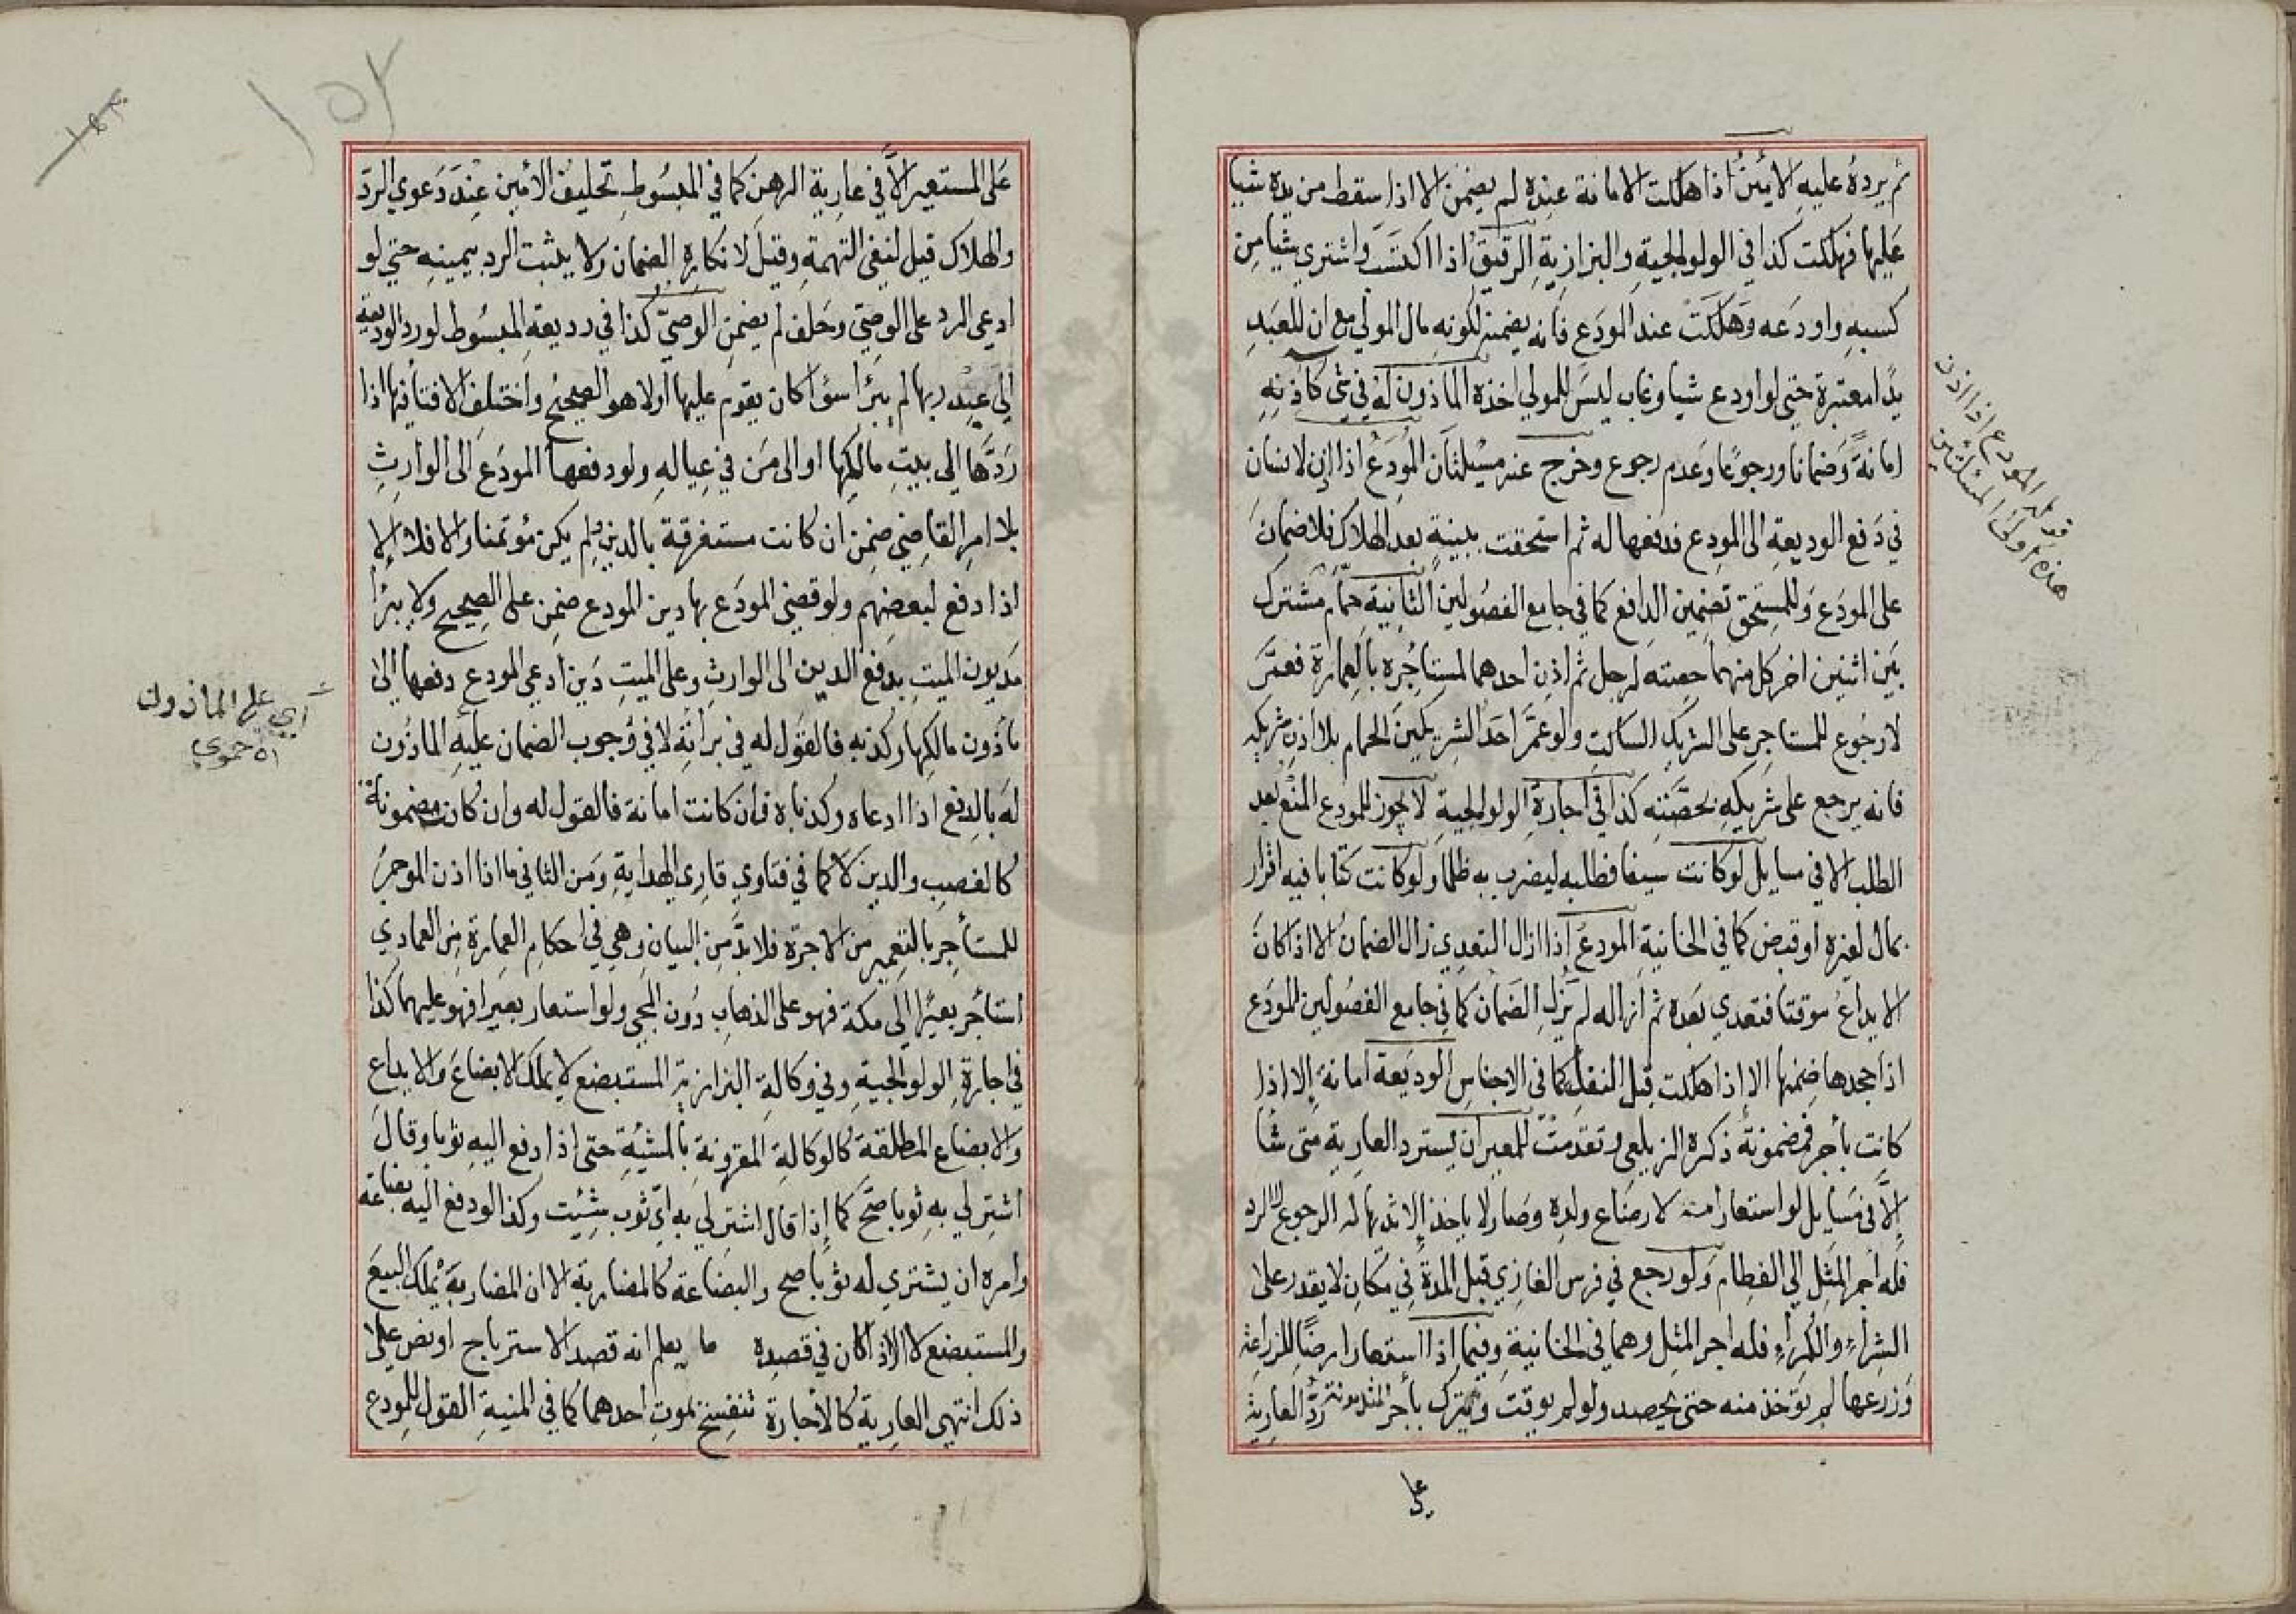 ثم يرده عليه الامين اذا هلكت الامانة عنده لم يضمن الا اذا سقط من يده شيا
عليها فهلكت كذا في الولوالجية والبزازية الرقيق اذا اكتسب واشتري شيا من
كسبه واودعه وهلكت عند المودع فانه يضمنه لكونه مال المولي مع ان للعبد
يدا معتبرة حتي لو اودع شيا وغاب ليس للمولي اخذه الماذون له في شي كاذنه
امانة وضمانا ورجوعا وعدم رجوع وخرج عنه مسئلتان المودع اذا اذن لانسان
في دفع الوديعة الى المودع فدفعها له ثم استحقت ببينة بعد الهلاك فلا ضمان
على المودع وللمستحق تضمين الدافع كما في جامع الفصولين الثانية حمام مشترك
بين اثنين اجر كل منهما حصته لرجل ثم اذن احدهما لمستاجره بالعمارة فعمر
لا رجوع للمستاجر على الشريك الساكت ولو عمر احد الشريكين الحمام بلا اذن شريكه
فانه يرجع على شريكه بحصته كذا في اجارة الولوالجية لا يجوز للمودع المنع بعد
الطلب الا في مسايل لو كانت سيفا فطلبه ليضرب به ظلما ولو كانت كتابا فيه اقرار
بمال لغيره او قبض كما في الخانية المودع اذا ازال التعدي زال الضمان الا اذا كان
الايداع موقتا فتعدي بعده ثم ازاله لم يزل الضمان كما في جامع الفصولين المودع
اذا جحدها ضمنها الا اذا هلكت قبل النقل كما في الاجناس الوديعة امانة الا اذا
كانت بأجر فمضمونة ذكره الزيلعي وتقدمت للمعير ان يسترد العارية متى شا
إلا في مسايل لو استعار أمة لارضاع ولده وصار لا ياخذ إلا ثديها له الرجوع لا الرد
فله أجر المثل الي الفطام ولو رجع في فرس الغازي قبل المدة في مكان لا يقدر على
الشراء والكراء فله اجر المثل وهما في الخانية وفيما اذا استعار ارضا للزراعة
وزرعها لم توخذ منه حتى يحصد ولو لم يوقت وتترك بأجر المثل مونة رد العارية
على
قوله المودع اذا اذن
هذه اولى المسئلتين
١٥٢
على المستعير الا في عارية الرهن كما في المبسوط تحليف الأمين عند دعوي الرد
والهلاك قيل لنفي التهمة وقيل لانكاره الضمان ولا يثبت الرد بيمينه حتي لو
ادعى الرد على الوصي وحلف لم يضمن الوصي كذا في وديعة المبسوط لو رد الوديعة
الى عبد ربها لم يبرأ سوا كان يقوم عليها اولا هو الصحيح واختلف الافتا فيما اذا
ردها إلي بيت مالكها او الى من في عياله ولو دفعها المودع الى الوارث
بلا امر القاضي ضمن ان كانت مستغرقة بالدين ولم يكن مؤتمنا والا فلا الا
اذا دفع لبعضهم ولو قضي المودع بها دين المودع ضمن على الصحيح ولا يبرأ
مديون الميت بدفع الدين الى الوارث وعلى الميت دين ادعي المودع دفعها الى
ماذون مالكها وكذبه فالقول له في برائته لا في وجوب الضمان عليه الماذون
له بالدفع اذا ادعاه وكذباه فان كانت امانة فالقول له وان كان مضمونة
كالغصب والدين لا كما في فتاوي قارى الهداية ومن الثاني ما اذا اذن الموجر
للمستأجر بالتعمير من الاجرة فلا بد من البيان وهي في احكام العمارة من العمادي
استأجر بعيرا الى مكة فهو على الذهاب دون المجي ولو استعار بعيرا فهو عليهما كذا
في اجارة الولوالجية وفي وكالة البزازية المستبضع لا يملك الابضاع والايداع
والابضاع المطلقة كالوكالة المقرونة بالمشيئة حتى اذا دفع اليه ثوبا وقال
اشتر لي به ثوبا صح كما إذا قال اشتر لي به اي ثوب شئت وكذا لو دفع اليه بضاعة
وامره ان يشتري له ثوبا صح والبضاعة كالمضاربة الا ان المضاربة يملك البيع
والمستبضع لا الا اذا كان في قصده ما يعلم انه قصد الاسترباح او نص على
ذلك انتهي العارية كالأجارة تنفسخ بموت احدهما كما في المنية القول للمودع
أي على الماذون
اه حموي